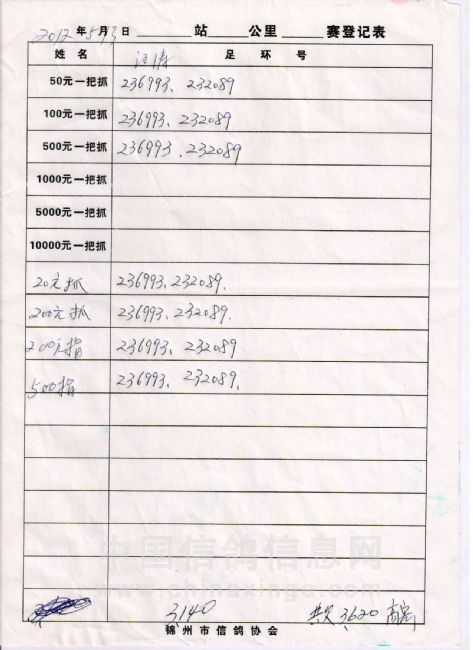 2012年5月3日 ______站______公里______赛登记表
姓 名 足 环 号
汪涛
50元一把抓 236993、232089
100元一把抓 236993、232089
500元一把抓 236993、232089
1000元一把抓
5000元一把抓
10000元一把抓
20元抓 236993、232089.
200元抓 236993、232089.
200元指 236993、232089
500指 236993、232089.
中国信鸽信息网
www.chinaxinge.com
3140 共欠3620
锦州市信鸽协会